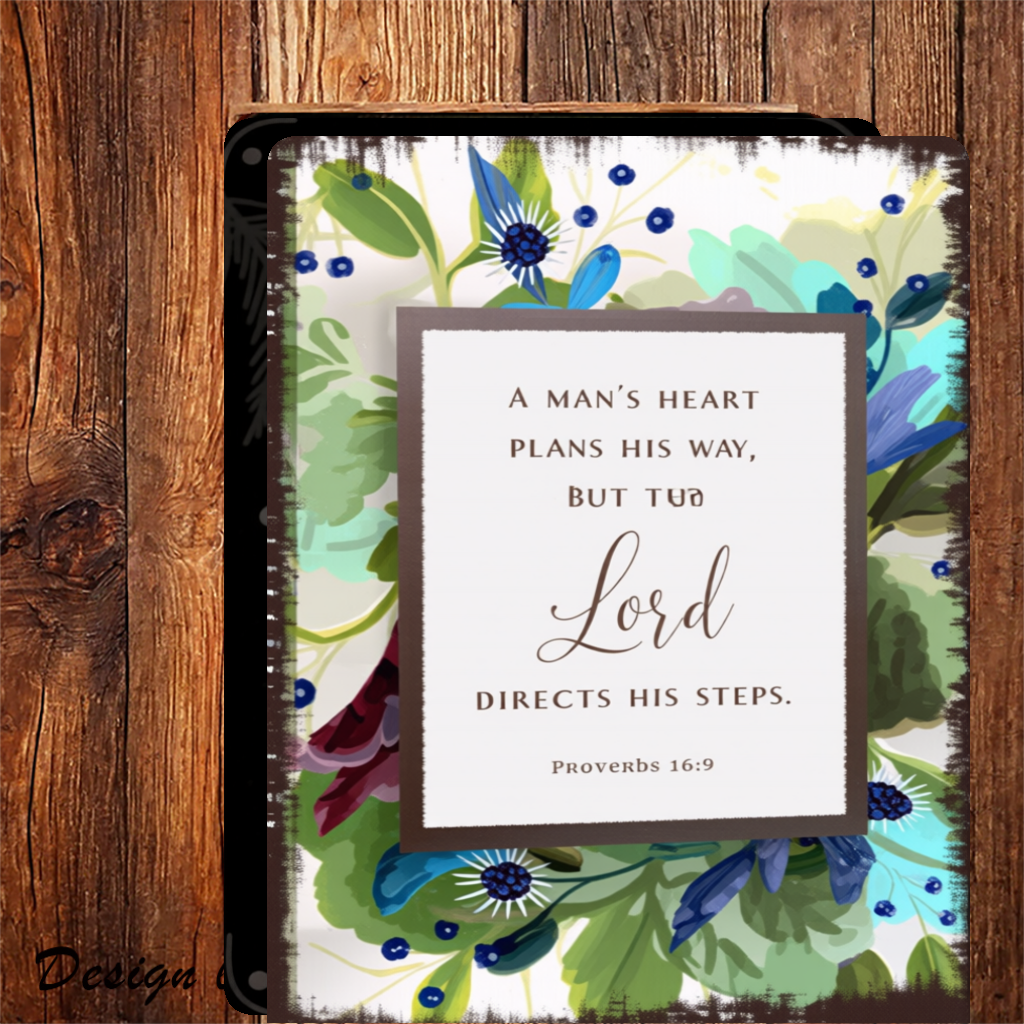 A MAN'S HEART
PLANS HIS WAY,
BUT
Lord
DIRECTS HIS STEPS.
Proverbs 16:9
Design